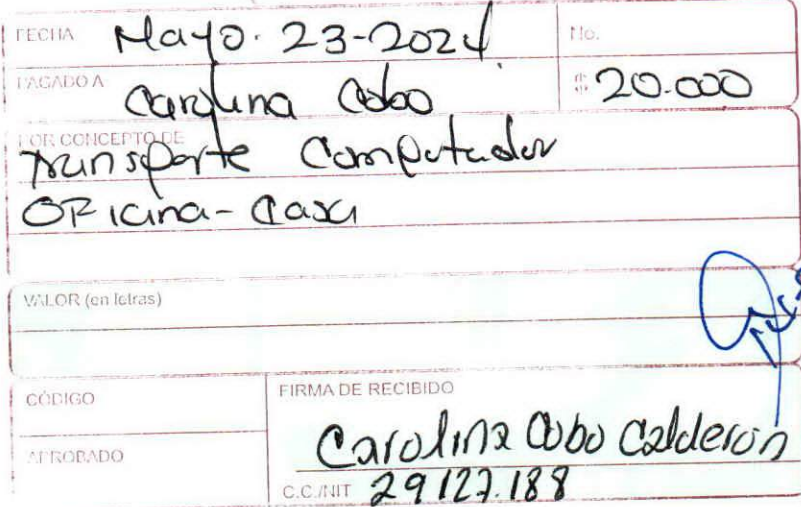 FECHA Mayo. 23-2024 No.
PAGADO A Carolina Cobo $ 20.000
POR CONCEPTO DE
Transporte Computador
OFicina - Casa
VALOR (en letras)
CÓDIGO
FIRMA DE RECIBIDO
Carolina Cobo Calderon
APROBADO
C.C./NIT 29127.188